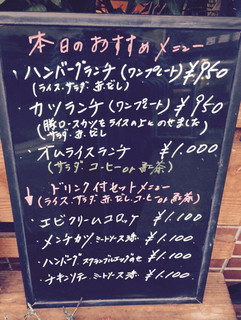 本日のおすすめメニュー
・ハンバーグランチ(ワンプレート)¥950
(ライス・サラダ・赤だし)
・カツランチ(ワンプレート)¥950
(豚ロースカツをライスの上にのせました
サラダ・赤だし)
・オムライスランチ ¥1.000
(サラダ・コーヒーor紅茶)
↓ドリンク付セットメニュー
(ライス・サラダ・赤だし・コーヒーor紅茶)
・エビクリームコロッケ ¥1.100
・メンチカツ ミートソース添 ¥1.100
・ハンバーグ スクランブルエッグのせ ¥1.100
・チキンソテー ミートソース添 ¥1.100